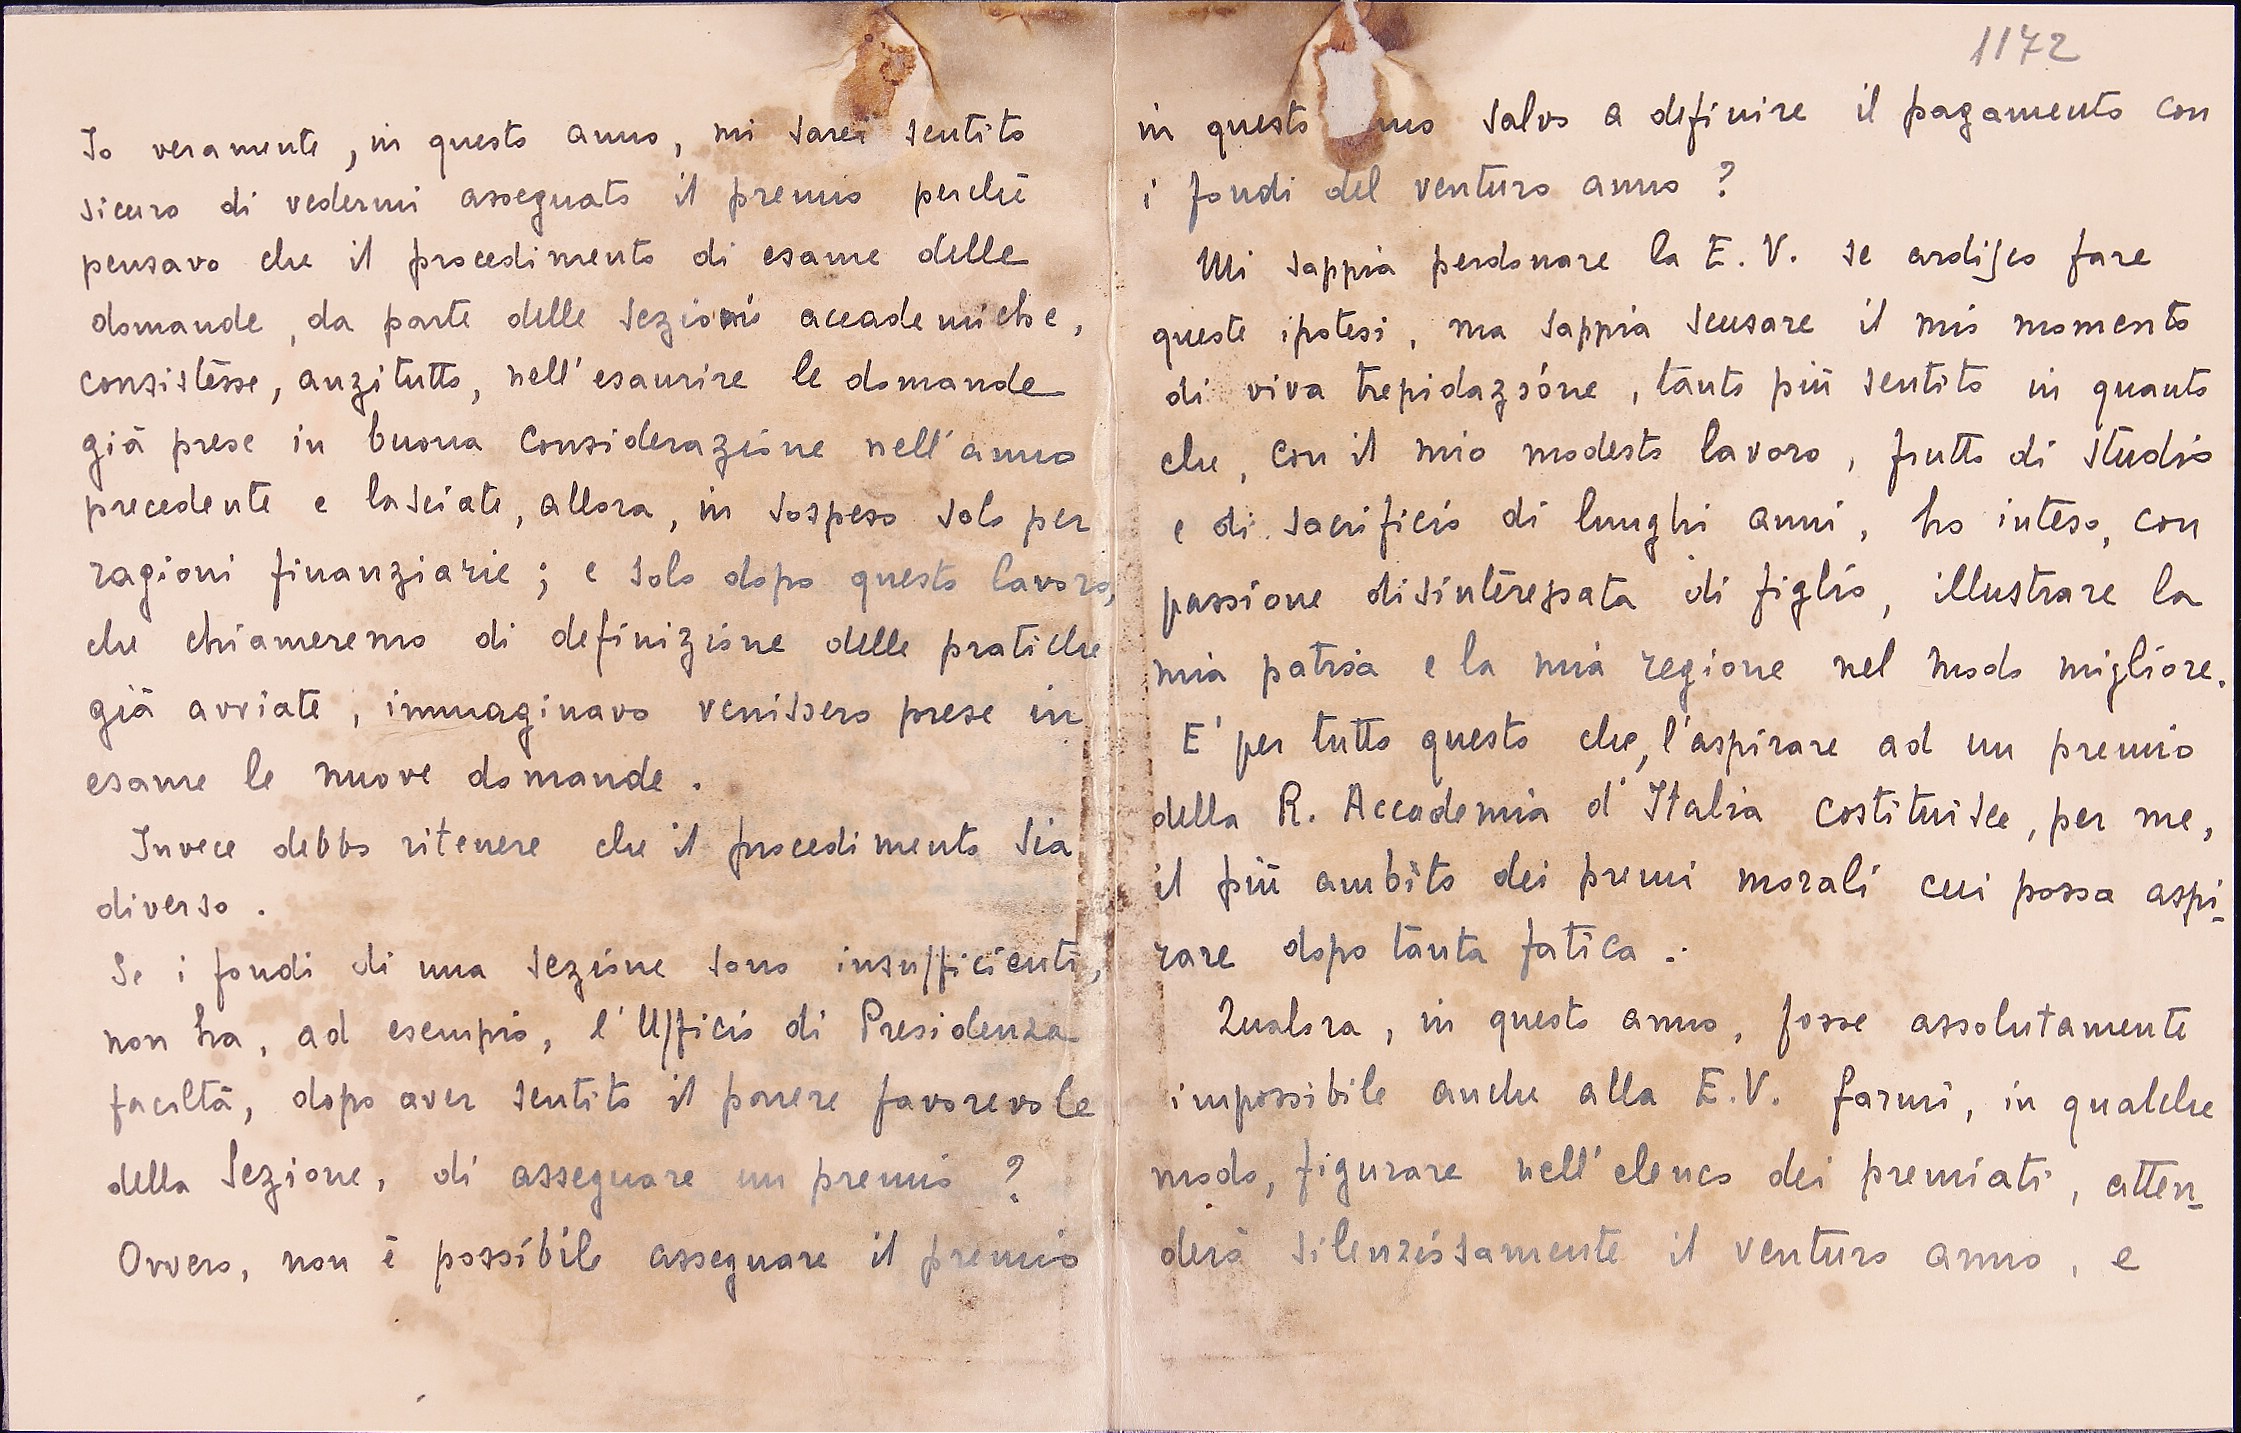 Io veramente, in questo anno, mi sarei sentito
sicuro di vedermi assegnato il premio perchè
pensavo che il procedimento di esame delle
domande, da parte delle sezioni accademiche,
consistesse, anzitutto, nell'esaurire le domande
già prese in buona considerazione nell'anno
precedente e lasciate, allora, in sospeso solo per
ragioni finanziarie; e solo dopo questo lavoro,
che chiameremo di definizione delle pratiche
già avviate, immaginavo venissero prese in
esame le nuove domande.
Invece debbo ritenere che il procedimento sia
diverso.
Se i fondi di una sezione sono insufficienti,
non ha, ad esempio, l'Ufficio di Presidenza
facoltà, dopo aver sentito il parere favorevole
della Sezione, di assegnare un premio?
Ovvero, non è possibile assegnare il premio
1172
in questo anno salvo a definire il pagamento con
i fondi del venturo anno?
Mi sappia perdonare la E.V. se ardisco fare
queste ipotesi, ma sappia scusare il mio momento
di viva trepidazione, tanto più sentito in quanto
che, con il mio modesto lavoro, frutto di studio
e di sacrificio di lunghi anni, ho inteso, con
passione disinteressata di figlio, illustrare la
mia patria e la mia regione nel modo migliore.
E' per tutto questo che, l'aspirare ad un premio
della R. Accademia d'Italia costituisce, per me,
il più ambito dei premi morali cui possa aspi-
rare dopo tanta fatica.
Qualora, in questo anno, fosse assolutamente
impossibile anche alla E.V. farmi, in qualche
modo, figurare nell'elenco dei premiati, atten-
derò silenziosamente il venturo anno, e